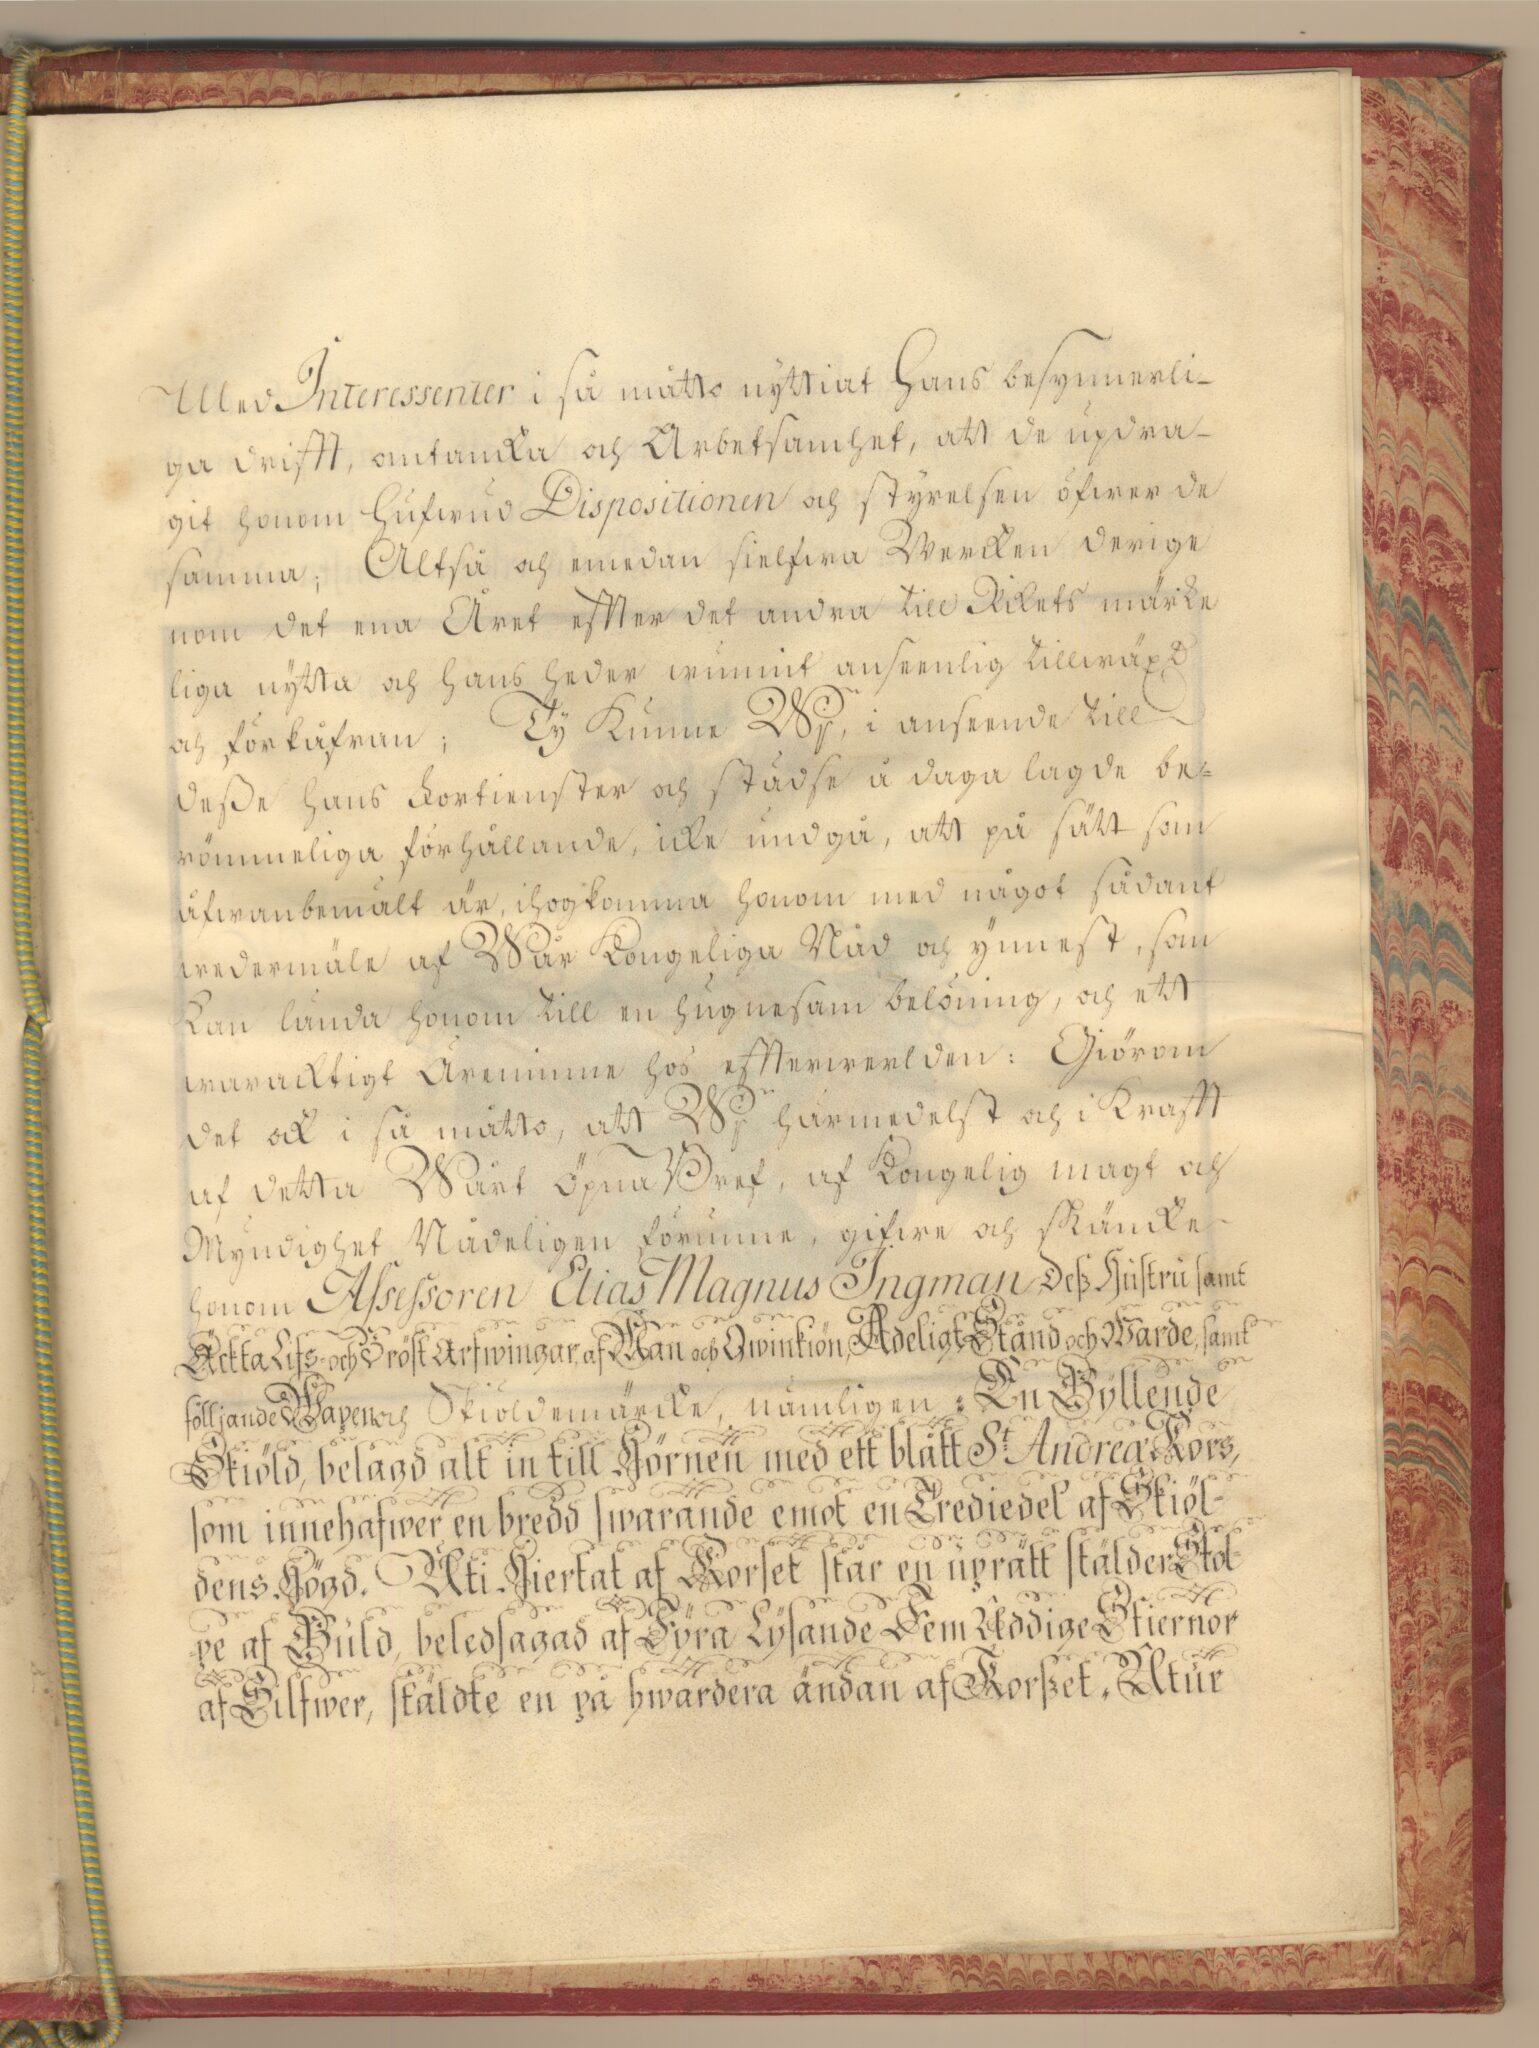 Med Interessenter i så måtto nyttiat Hans besynnerli-
ga drifft, omtancka och Arbetsamhet, att de updra-
git honom Hufwud Dispositionen och styrelsen öfwer de
samma; Altså och emedan sielfwa Wercken derige
nom det ena Året effter det andra till Rikets märke
liga nytta och hans heder wunnit anseenlig tillwäxt
och förkåfran; Ty Kunne Wij, i anseende till
deße hans Förtienster och städse å daga lagde be-
römmeliga förhållande, icke undgå, att på sätt som
åfwanbemält är, ihogkomma honom med något sådant
wedermäle af Wår Kongeliga Nåd och ynnest, som
kan lända honom till en hugnesam belöning, och ett
waracktigt Äreminne hos effterwerlden: Giörom
det ock i så måtto, att Wij härmedelst och i Krafft
af detta Wårt Öpna Bref, af Kongelig magt och
Myndighet Nådeligen förunne, gifwe och skäncke
honom Assessoren Elias Magnus Ingman Deß Hustru samt
Äckta Lifs- och Bröst Arfwingar, af Man och Qwinkiön, Adeligt Stånd och Wärde, samt
följjande Wapen och Skiöldemärcke, nämligen: En Gyllende
Skiöld, belagd alt in till Hörnen med ett blått St. Andreæ Kors,
som innehafwer en bredd swarande emot en Trediedel af Skiöl-
dens Högd. Uti Hiertat af Korset står en uprätt stälder Stol-
pe af Guld, beledsagad af Fyra Lysande Fem Uddige Stiernor
af Silfwer, stäldte en på hwardera ändan af Korßet. Utur